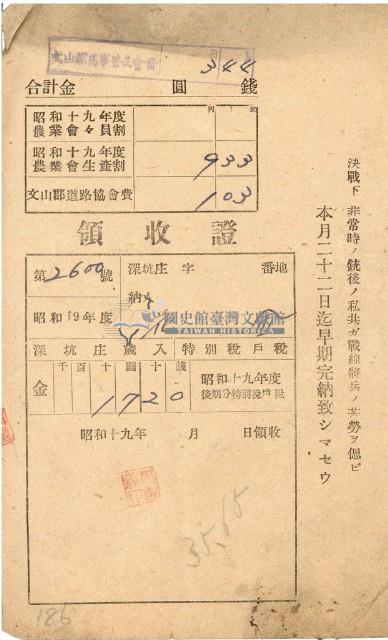 344
合計金 圓 錢
昭和十九年度
農業會々員割
昭和十九年度
農業會生產割
933
文山郡道路協會費
103
領收證
第2600號
深坑庄 字 番地
納人
昭和19年度
國史館臺灣文獻館
TAIWAN HISTORICA
深坑庄歲入特別稅戶稅
金
千百十圓十錢
1720
昭和十九年度
後期分特別稅戶稅
昭和十九年 月 日領收
決戰下非常時ノ銃後ノ私共ガ戰線將兵ノ苦勞ヲ偲ビ
本月二十二日迄早期完納致シマセウ
3565
186